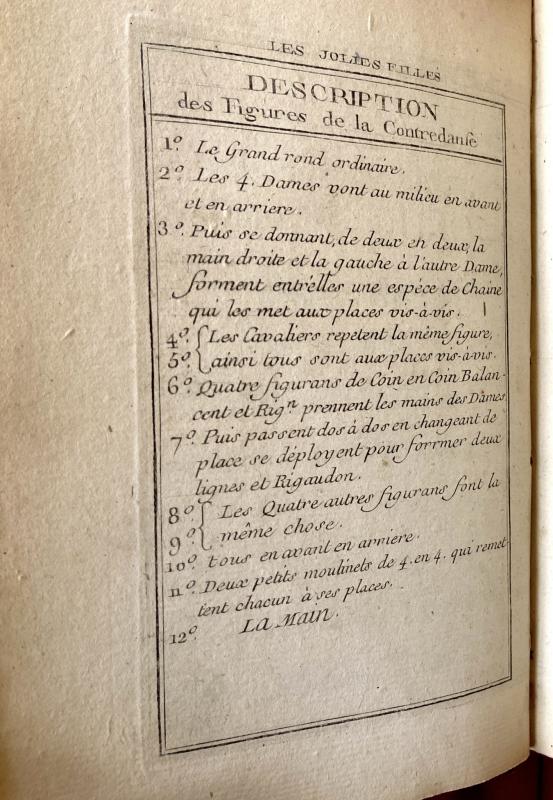 LES JOLIES FILLES
DESCRIPTION
des Figures de la Contredanse
1.º Le Grand rond ordinaire.
2º Les 4. Dames vont au milieu en avant
et en arriere.
3º. Puis se donnant, de deux en deux, la
main droite et la gauche à l'autre Dame,
forment entr'elles une espèce de Chaine
qui les met aux places vis-à-vis.
4º. { Les Cavaliers repetent la même figure,
5º. { ainsi tous sont aux places vis-à-vis.
6º. Quatre figurans de Coin en Coin Balan-
cent et Rig.n prennent les mains des Dames
7º. Puis passent dos à dos en changeant de
place se déployent pour forrmer deux
lignes et Rigaudon.
8º. { Les Quatre autres figurans font la
9º. { même chose.
10º. tous en avant en arriere.
11º. Deux petits moulinets de 4. en 4. qui remet-
tent chacun à ses places.
12º. La Main.